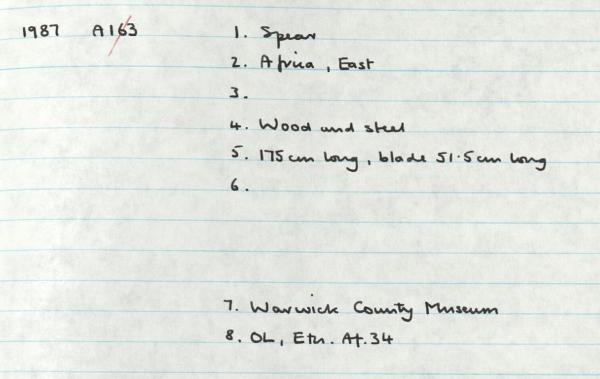 1987 A163 1. Spear
2. Africa, East
3.
4. Wood and steel
5. 175cm long, blade 51.5cm long
6.
7. Warwick County Museum
8. OL, Eth. Af.34